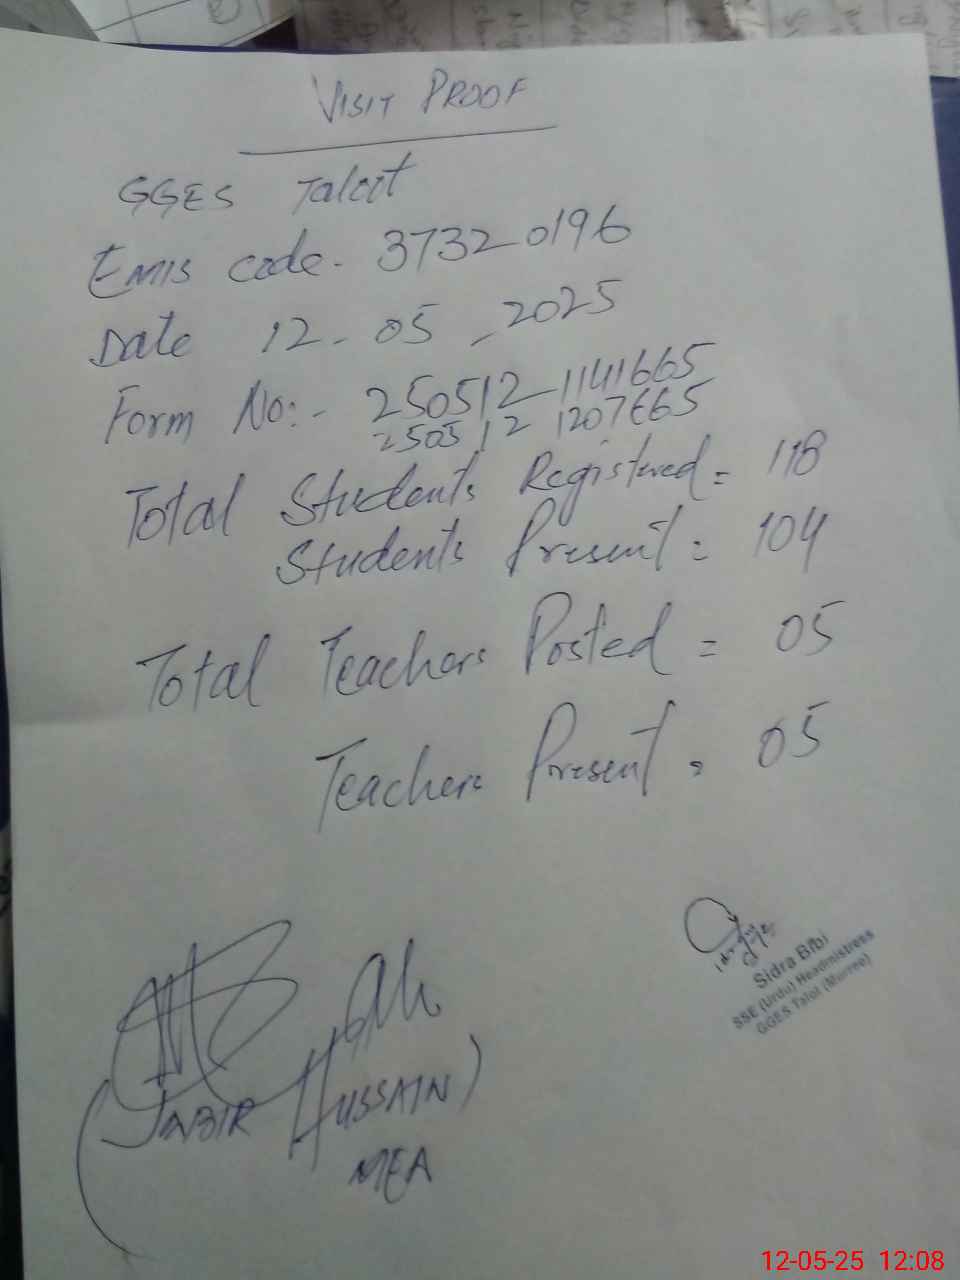 VISIT PROOF
GGES Talott
EMIS code. 37320196
Date 12-05-2025
Form No:- 250512-1141665
250512 1207665
Total Students Registered = 118
Students Present = 104
Total Teachers Posted = 05
Teachers Present = 05
Sidra Bibi
SSE (Urdu) Headmistress
GGES Talot (Murree)
(JABIR HUSSAIN)
MEA
12-05-25 12:08